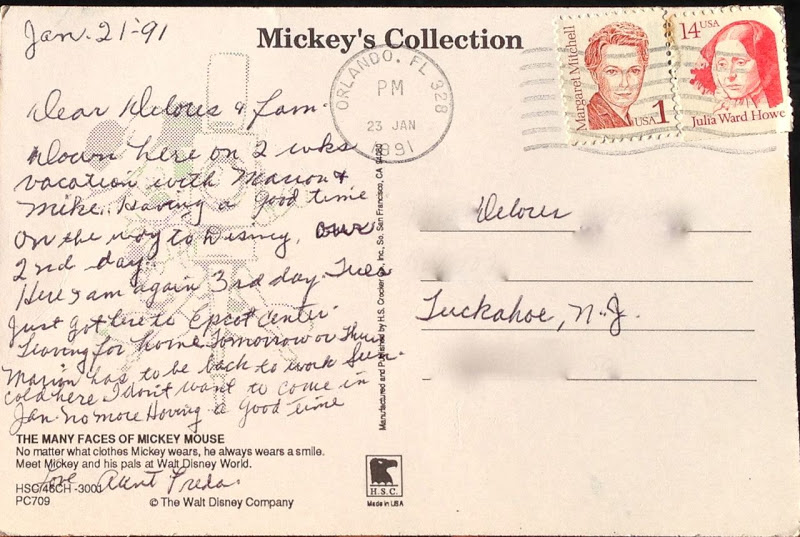 Jan. 21-91
Mickey's Collection
Dear Delores & Fam.
Down here on 2 wks
vacation with Marion &
Mike. Having a good time
On the way to Disney,
2nd day.
Here I am again 3rd day. Tues
Just got here to Epcot Center
Leaving for home tomorrow or Thur
Marion has to be back to work Sun.
cold here I don't want to come in
Jan. no more Having a Good time
Love Aunt Freda
THE MANY FACES OF MICKEY MOUSE
No matter what clothes Mickey wears, he always wears a smile.
Meet Mickey and his pals at Walt Disney World.
HSC/46CH -3001
PC709
© The Walt Disney Company
Manufactured and Published by H.S. Crocker Co., Inc., So. San Francisco, CA 94080
H.S.C.
Made in USA
ORLANDO, FL 328
PM
23 JAN
1991
Margaret Mitchell
USA 1
14 USA
Julia Ward Howe
Delores
Tuckahoe, N.J.